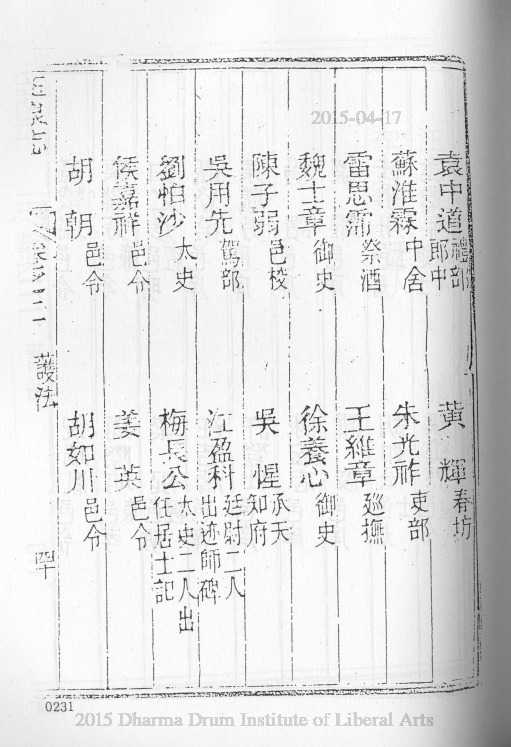 2015-04-17
袁中道禮部郎中 黃輝春坊
蘇淮霖中舍 朱光祚吏部
雷思霈祭酒 王維章廵撫
魏士章御史 徐養心御史
陳子弱邑校 吳惺承天知府
吳用先駕部 江盈科廷尉二人出迹師碑
劉怕沙太史 梅長公太史二人出任居士記
侯嘉祥邑令 姜英邑令
胡朝邑令 胡如川邑令
玉泉志 卷之二 護法
0231
2015 Dharma Drum Institute of Liberal Arts